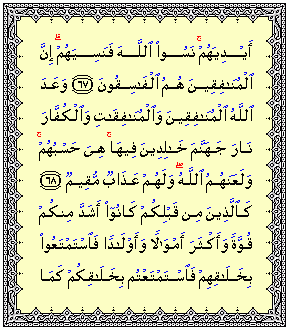 أَيْدِيَهُمْ ۚ نَسُوا۟ ٱللَّهَ فَنَسِيَهُمْ ۗ إِنَّ
ٱلْمُنَٰفِقِينَ هُمُ ٱلْفَٰسِقُونَ ﴿٦٧﴾ وَعَدَ
ٱللَّهُ ٱلْمُنَٰفِقِينَ وَٱلْمُنَٰفِقَٰتِ وَٱلْكُفَّارَ
نَارَ جَهَنَّمَ خَٰلِدِينَ فِيهَا ۚ هِىَ حَسْبُهُمْ ۚ
وَلَعَنَهُمُ ٱللَّهُ ۖ وَلَهُمْ عَذَابٌ مُّقِيمٌ ﴿٦٨﴾
كَٱلَّذِينَ مِن قَبْلِكُمْ كَانُوٓا۟ أَشَدَّ مِنكُمْ
قُوَّةً وَأَكْثَرَ أَمْوَٰلًا وَأَوْلَٰدًا فَٱسْتَمْتَعُوا۟
بِخَلَٰقِهِمْ فَٱسْتَمْتَعْتُم بِخَلَٰقِكُمْ كَمَا